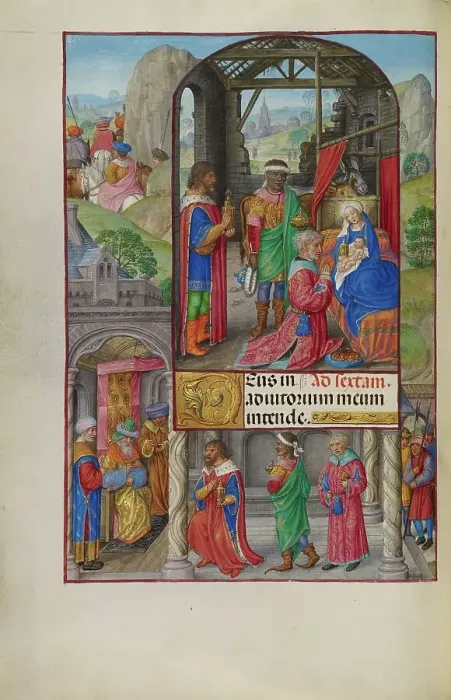 DEus in Ad sextam.
adiutorium meum
intende.